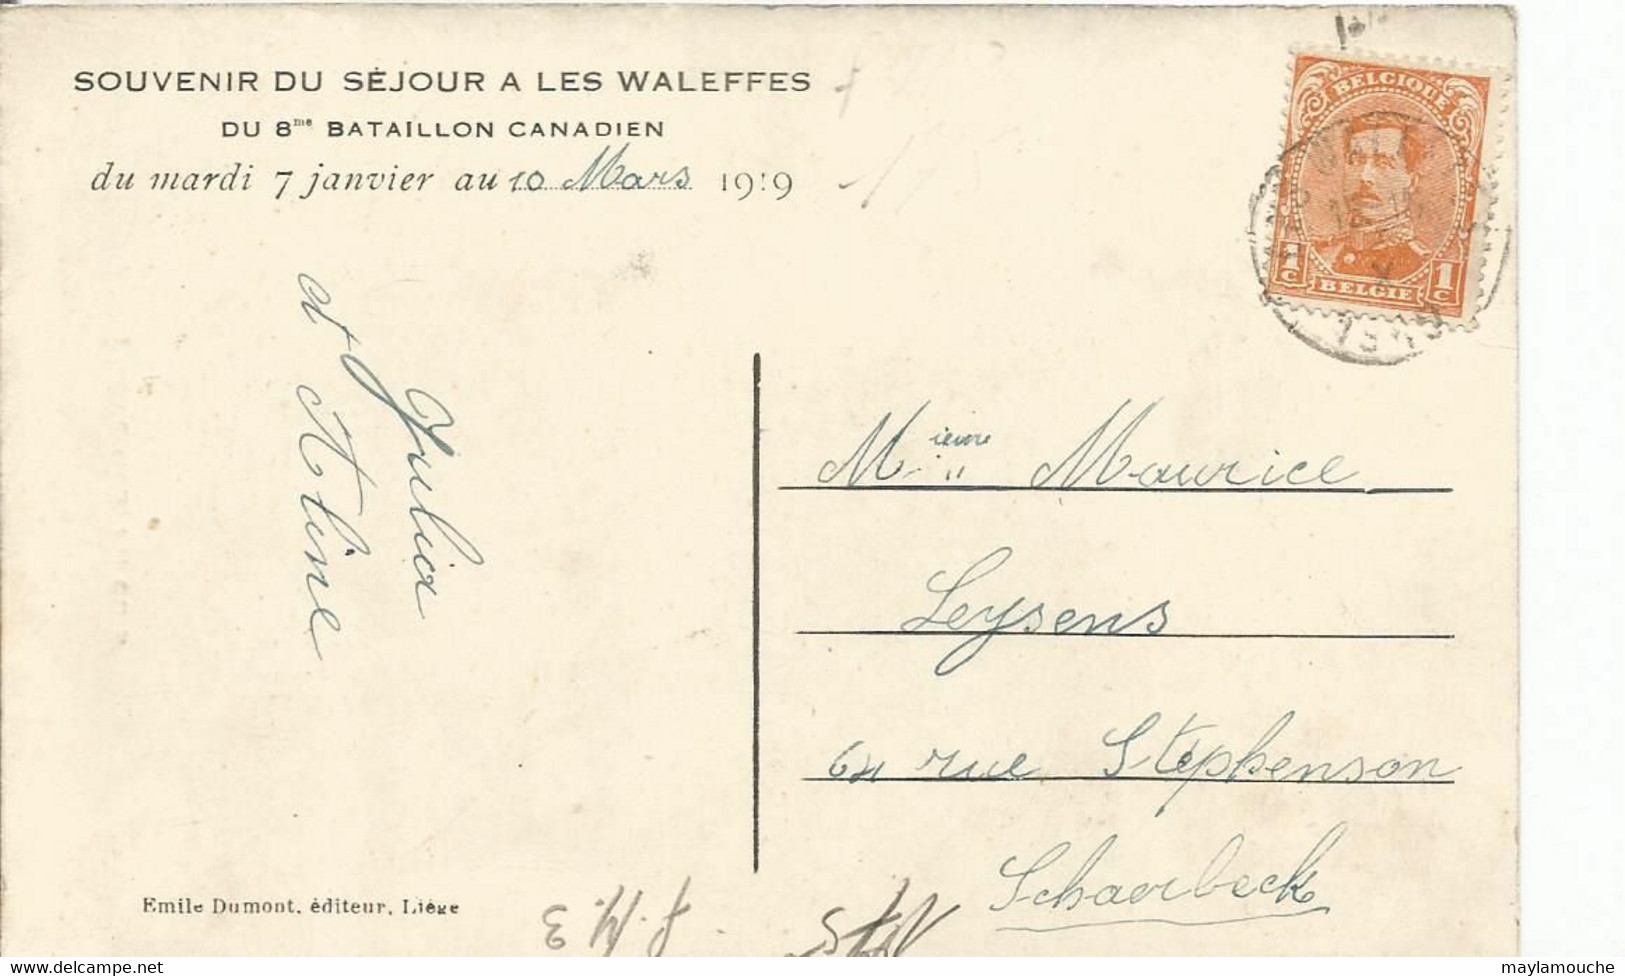 SOUVENIR DU SÉJOUR A LES WALEFFES
DU 8me BATAILLON CANADIEN
du mardi 7 janvier au 10 Mars 1919
BELGIQUE
1c 1c
BELGIË
Julia
et Aline
Maurice
Leysens
64 rue Stéphenson
Schaerbeck
Emile Dumont, éditeur, Liége
maylamouche